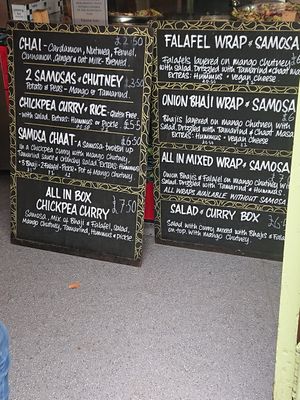 CHAI - Cardamon, Nutmeg, Fennel, £2.50
Cinnamon, Ginger & Oat Milk - Brewed.
2 SAMOSAS & CHUTNEY
Potato & Peas - Mango & Tamarind.
CHICKPEA CURRY & RICE - Gluten Free
- with Salad. Extras: Hummus & Pickle £5.50
SAMOSA CHAAT - A Samosa - broken up £6.50
In a Chickpea Curry with Mango Chutney,
Tamarind Sauce & Crunchy
ALL IN BOX
CHICKPEA CURRY £7.50
Samosa, Mix of Bhaji & Falafel, Salad,
Mango Chutney, Tamarind, Hummus & Pickle.
FALAFEL WRAP & SAMOSA
Falafels layered on mango chutney with
Salad. Drizzled with Tamarind &
EXTRAS: HUMMUS & Vegan Cheese
ONION BHAJI WRAP & SAMOSA
Bhajis layered on mango chutney with
Salad. Drizzled with Tamarind & Chaat Masala
Extras: HUMMUS & Vegan Cheese
ALL IN MIXED WRAP & SAMOSA
Onion Bhajis & Falafel on mango chutney
Salad. Drizzled with Tamarind & Hummus
ALL WRAPS AVAILABLE WITHOUT SAMOSA
SALAD & CURRY BOX
Salad with Curry mixed with Bhajis & Falafel
on top. With Mango Chutney.